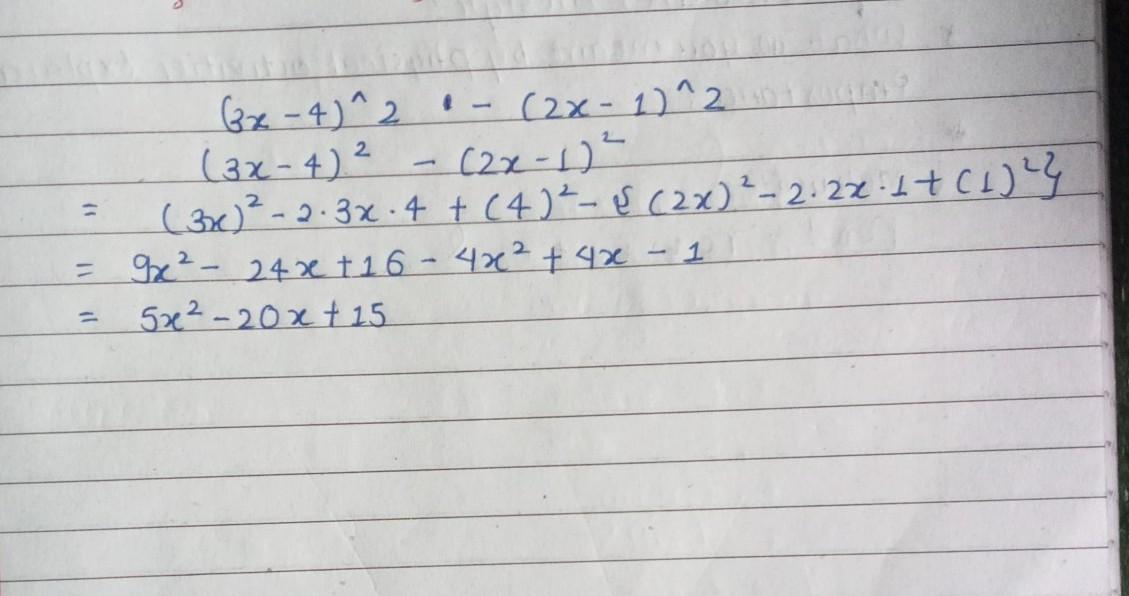 (3x-4)^2 - (2x-1)^2
(3x-4)² - (2x-1)²
= (3x)² - 2·3x·4 + (4)² - {(2x)² - 2·2x·1 + (1)²}
= 9x² - 24x + 16 - 4x² + 4x - 1
= 5x² - 20x + 15